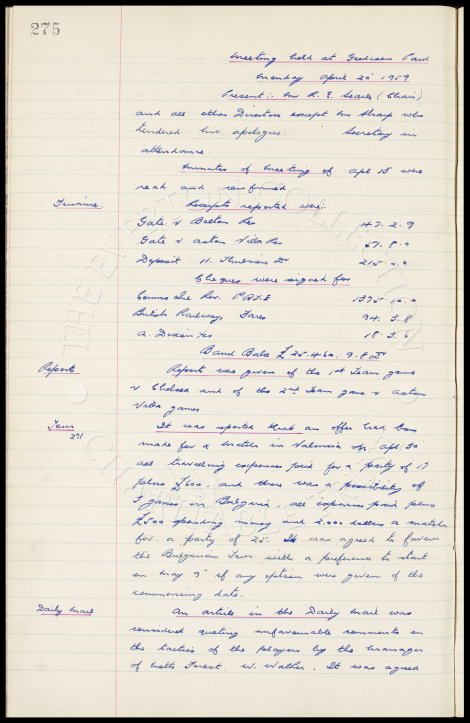 275
Meeting held at Goodison Park
Monday April 20 1959.
Present:- Mr R. E. Searle (Chair)
and all other Directors except Mr Sharp who
tendered his apologies. Secretary in
attendance.
Minutes of Meeting of Apl 15 were
read and confirmed.
Finance. Receipts reported were:-
Gate v Bolton Res 47. 2. 9
Gate v Aston Villa Res 57. 8. 0
Deposit H. Dr 215. 0. 0
Cheques were signed for
Comms Inl Rev. P.A.Y.E 1375 10. 0
British Railway, Fares 94. 3. 8
A. Dixon 18. 5. 6
Bank Balce £25.460. 9. 8 Dr
Reports Reports was given of the 1st Team game
v Chelsea and of the 2nd Team game v Aston
Villa games
Tour It was reported that an offer had been
271 made for a match in Valencia on Apl 30
all travelling expenses paid for a party of 17
plus £600. and there was a possibility of
3 games in Bulgaria, all expenses paid plus
£500 spending money and 2.000 dollars a match
for a party of 25. It was agreed to favour
the Bulgarian Tour with a preference to start
on May 9 if any option were given of the
commencing date.
Daily Mail An article in the Daily Mail was
considered quoting unfavourable comments on
the tactics of the players by the manager
of Notts Forest. W. Walker. It was agreed
THE EVERTON COLLECTION